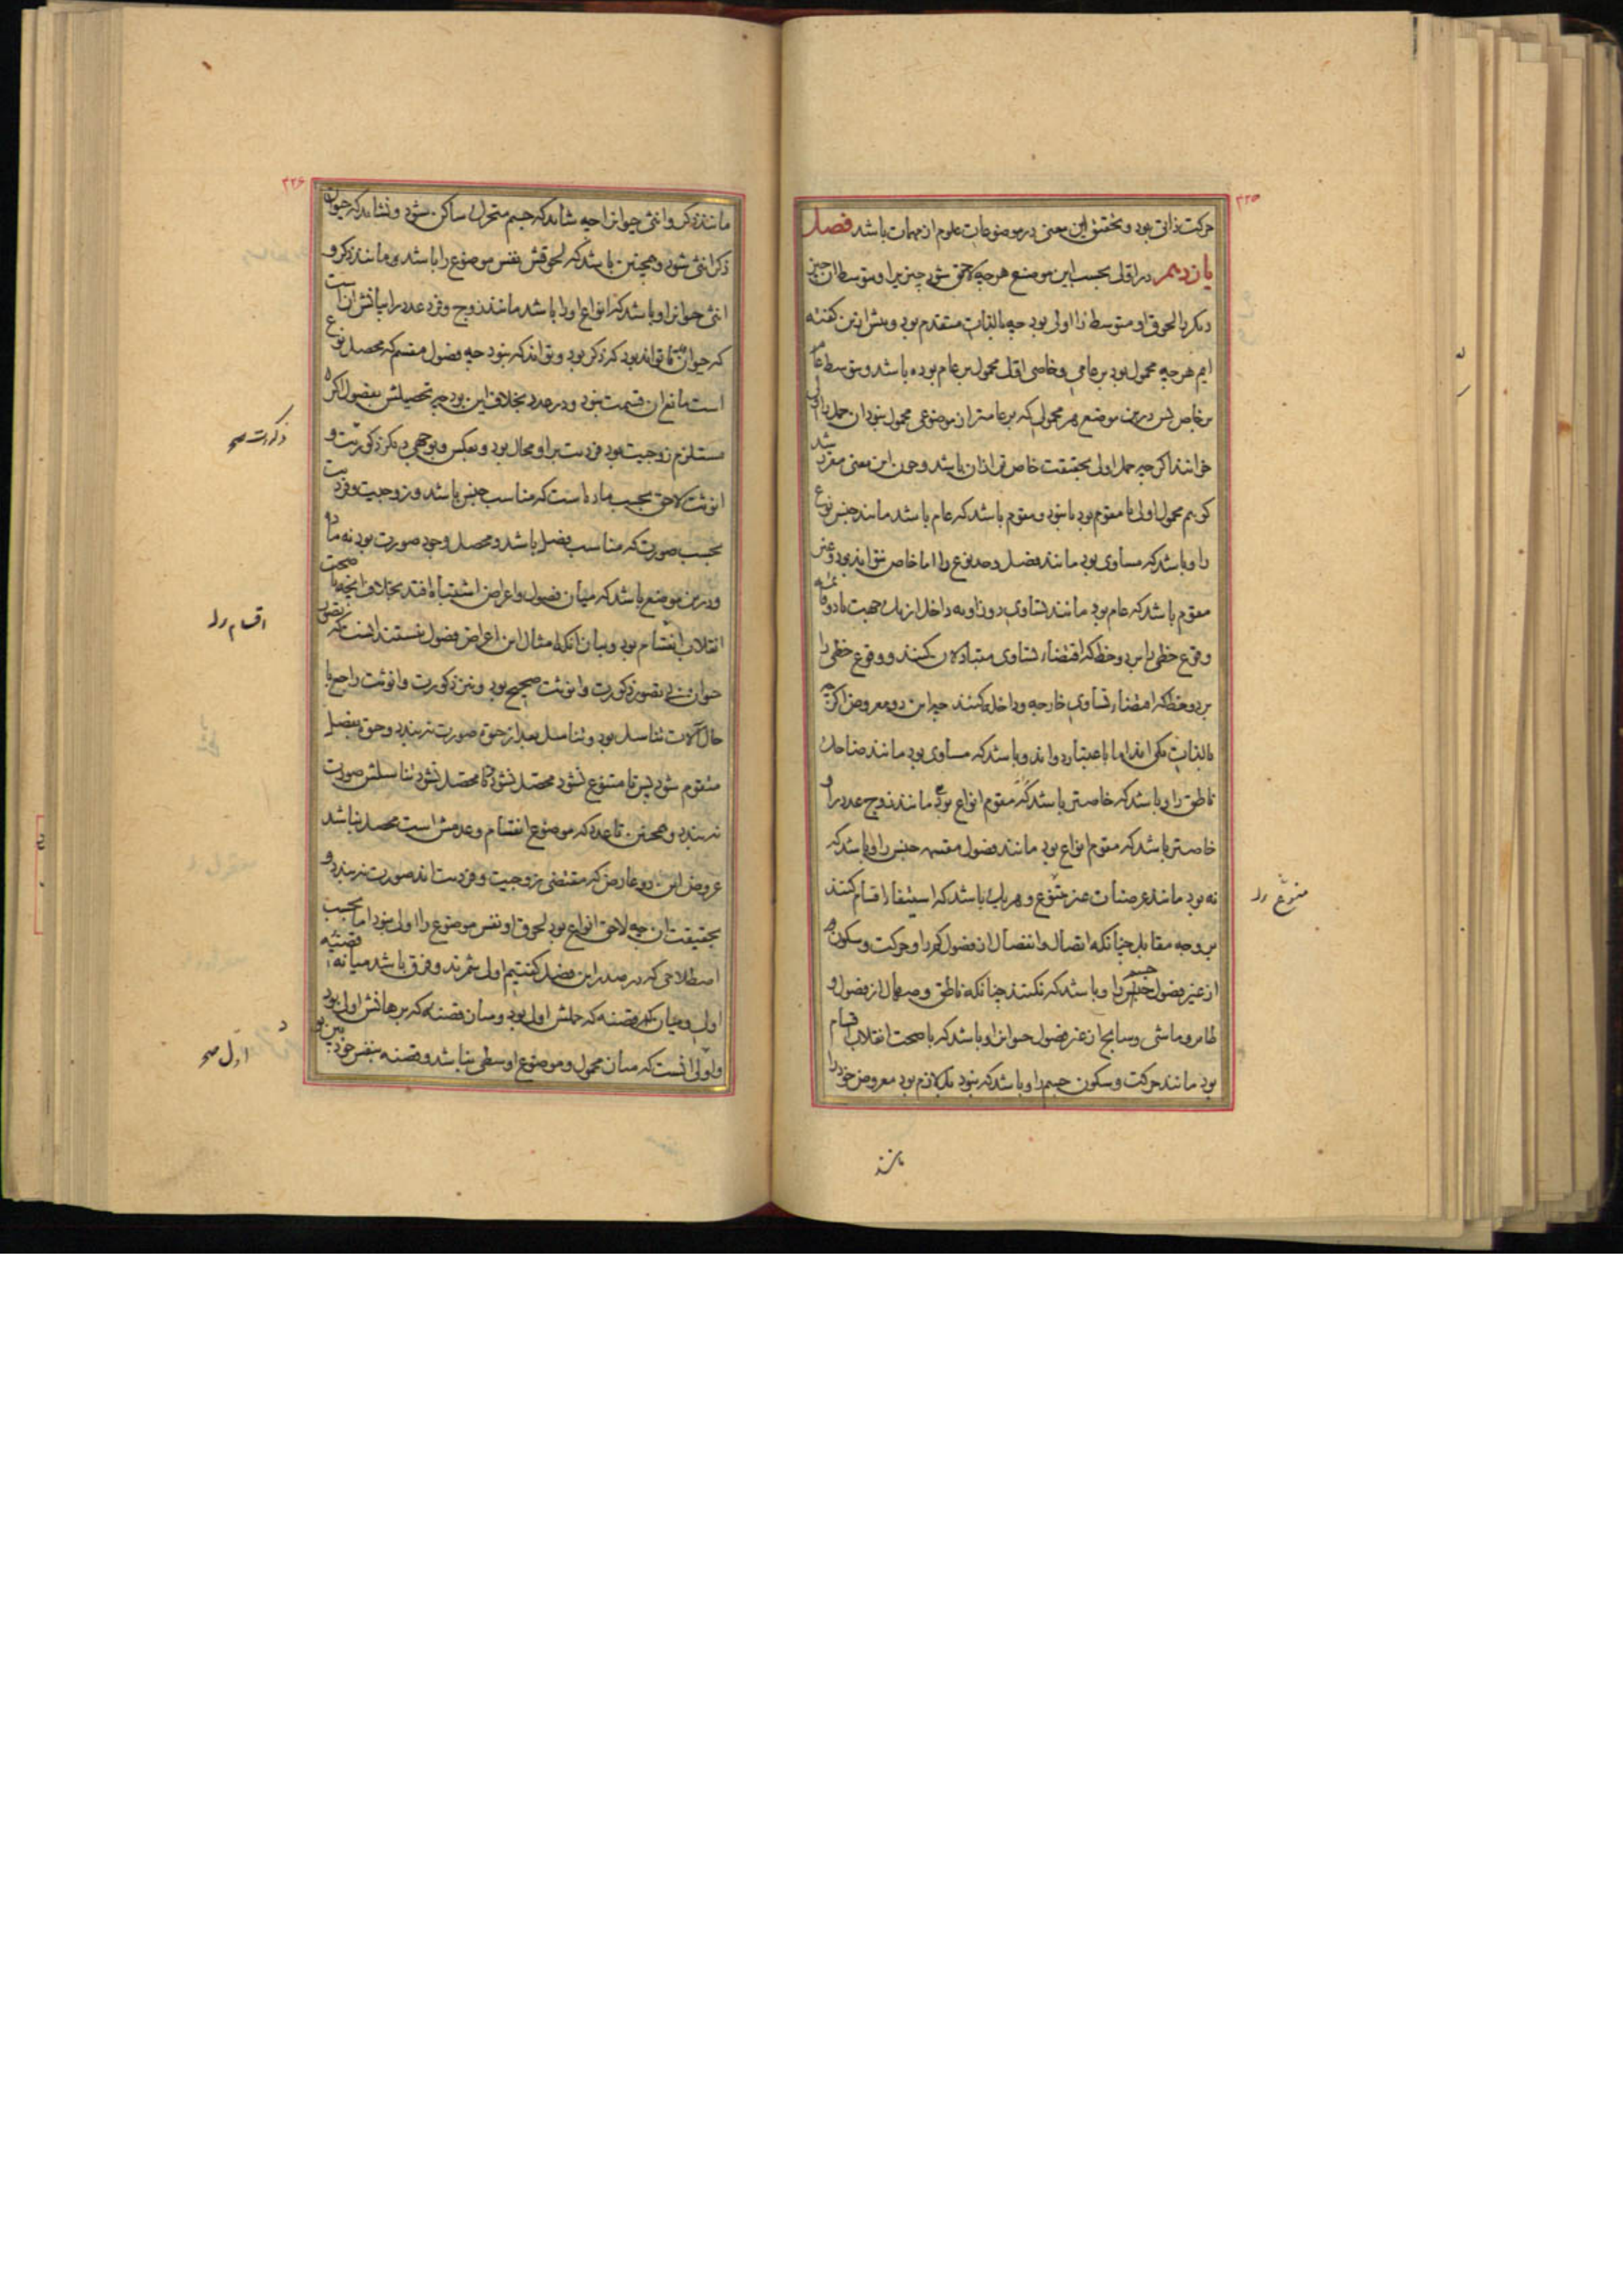 ۲۲۵
حرکت ذاتی بود و تحقیق این معنی در موضوعات علوم از مهمات باشد فصل
یازدهم در اولی بحسب این موضع هر چه لاحق شود چیزیرا و بتوسط ان چیز
دیکر را لحوق او متوسط را اولی بود چه بالذات متقدم بود و پیش ازین کفته
ایم هر چه محمول بود بر عامی و خاصی اول محمول بر عام بوده باشد و بتوسط عام
بر خاص پس درین موضع هر محمولی که بر عامتر از موضوعی محمول بنود ان حمل را اولی
خوانند اکر چه حمل اولی بحقیقت خاص تر ازان باشد و چون این معنی مقرر شد
کوییم محمول اولی یا مقوم بود یا بنود و مقوم باشد که عام باشد مانند جنس نوع
را و باشد که مساوی بود مانند فصل و حد نوع را اما خاص نتواند بود و غیر
مقوم باشد که عام بود مانند تساوی دو زاویه داخل از یک جهت با دو قائمه
وقوع خطی را بر دو خط که اقتضاء تساوی متبادلان کنند و وقوع خطی را
بر دو خط که اقتضاء تساوی خارجه و داخله کنند چه این دو معروض اکرچه
بالذات یکی اند اما باعتبار دو اند و باشد که مساوی بود مانند ضاحک
ناطق را و باشد که خاصتر باشد که مقوم انواع بود مانند زوج عدد را و
خاصتر باشد که مقوم انواع بود مانند فصول مقسمه جنس را و باشد که
نه بود مانند عرضیات غیر متنوع و هر یک باشد که استیفاء اقسام کنند
بر وجه مقابل چنانکه اتصال و انفصال از فصول کم را و حرکت و سکون
از غیر فصول جسم را و باشد که نکنند چنانکه ناطق و صهال از فصول و
طایر و ماشی و سابح از غیر فصول حیوانرا و باشد که با صحت انقلاب اقسام
بود مانند حرکت و سکون جسم را و باشد که بنود بلکه لازم بود معروض خود را
متنوع
مانند
۲۲۶
مانند ذکر و انثی حیوانرا چه شاید که جسم متحرک ساکن شود و نشاید که حیوان
ذکر انثی شود و همچنین باشد که لحوقش نفس موضوع را باشد مانند ذکر و
انثی حیوانرا و باشد که انواع او را باشد مانند زوج و فرد عدد را بیانش ان است
که حیوان تواند بود که ذکر بود و تواند که بنود چه فصول مقسم که محصل نوع
است مانع ان قسمت بنود و در عدد بخلاف این بود چه تحصیلش بفصول اکر
مستلزم زوجیت بود فردیت بر او محال بود و بعکس و بوجهی دیکر ذکوریت و
انوثت لاحق بحسب ماده است که مناسب جنس باشد و زوجیت و فردیت
بحسب صورت که مناسب فصل باشد و محصل وجود صورت بود نه ماده
و درین موضع باشد که میان فصول و اعراض اشتباه افتد بخلاف انچه با صحت
انقلاب اقسام بود و بیان انکه امثال این اعراض فصول نیستند انست که
حیوان بی تصور ذکورت و انوثت صحیح بود و نیز ذکورت و انوثت راجع با
حال آلات تناسل بود و تناسل بعد از حق صورت نه بندد و حق بفصل
متقوم شود پس تا متنوع نشود محصل نشود و تا محصل نشود تناسلش صورت
نه بندد و همچنین تا عدد که موضوع انقسام و عدمش است محصل نباشد
عروض این دو عارض که مقتضی زوجیت و فردیت اند صورت نه بندد و
بحقیقت ان چه لاحق انواع بود لحوق او نفس موضوع را اولی بنود اما بحسب
اصطلاحی که در صدر این فصل کفتیم اولی شمرند و فرق باشد میانه قضیه
اولی و میان قضیه که حملش اولی بود و میان قضیه که برهانش اولی بود
و اولی انست که میان محمول و موضوع اوسطی نباشد و قضیه بنفس خود بین بود
ذکورت صح
اقسام
اول صح